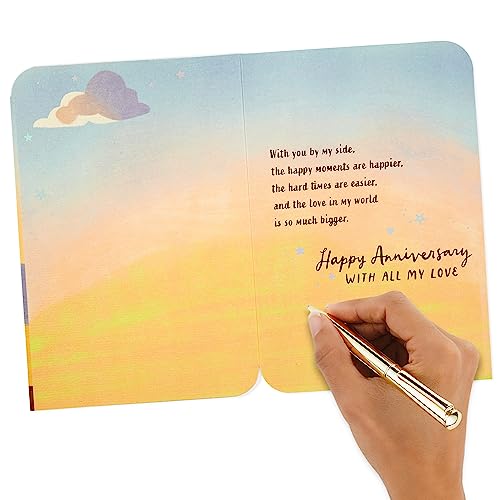 With you by my side,
the happy moments are happier,
the hard times are easier,
and the love in my world
is so much bigger.
Happy Anniversary
WITH ALL MY LOVE